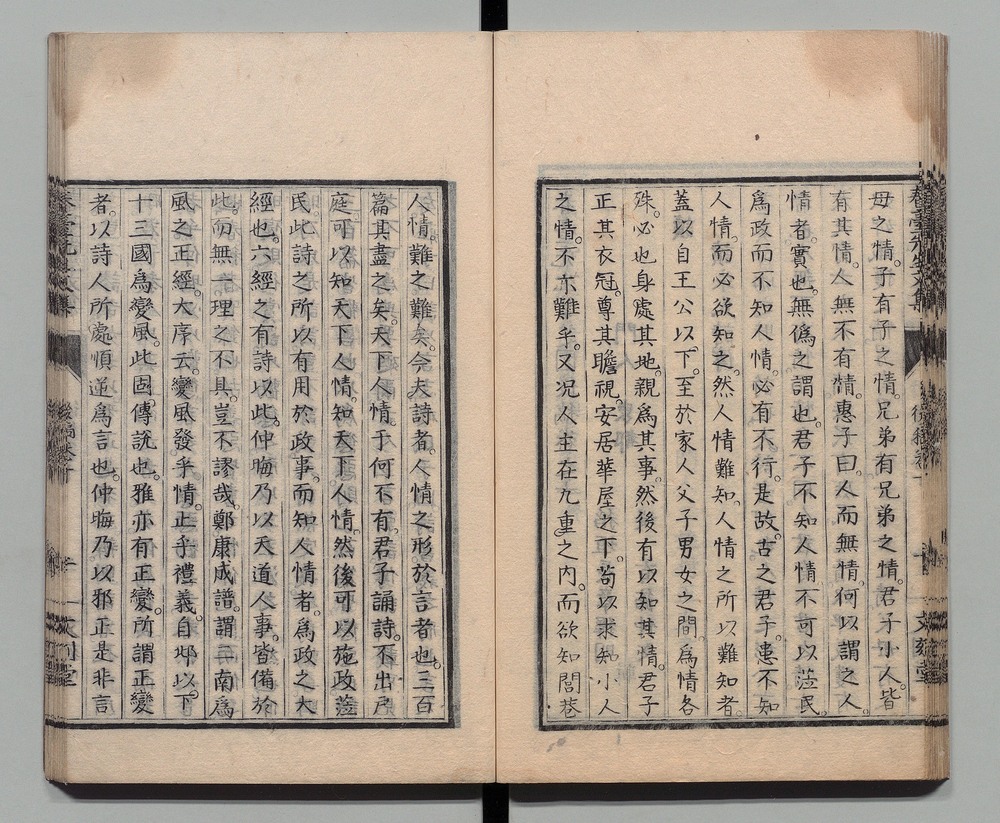 母之情。子有子之情。兄弟有兄弟之情。君子小人。皆
有其情。人無不有情。惠子曰。人而無情。何以謂之人。
情者。實也。無僞之謂也。君子不知人情。不可以莅民。
爲政而不知人情。必有不行。是故。古之君子。患不知
人情。而必欲知之。然人情難知。人情之所以難知者。
蓋以自王公以下。至於家人父子男女之間。爲情各
殊。必也身處其地。親爲其事。然後有以知其情。君子
正其衣冠。尊其瞻視。安居華屋之下。苟以求知小人
之情。不亦難乎。又況人主在九重之內。而欲知閭巷
人情。難之難矣。今夫詩者。人情之形於言者也。三百
篇其盡之矣。天下人情。于何不有。君子誦詩。不出戶
庭。可以知天下人情。知天下人情。然後可以施政莅
民。此詩之所以有用於政事。而知人情者。爲政之大
經也。六經之有詩以此。仲晦乃以天道人事。皆備於
此。而無一理之不具。豈不謬哉。鄭康成譜。謂二南爲
風之正經。大序云。變風發乎情。止乎禮義。自邶以下
十三國爲變風。此固傳說也。雅亦有正變。所謂正變
者。以詩人所處順逆爲言也。仲晦乃以邪正是非言